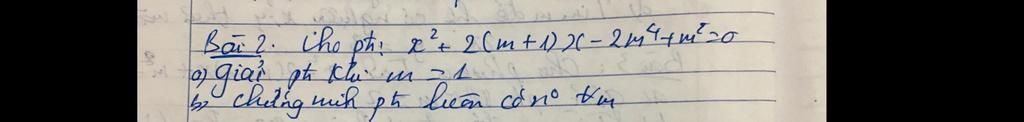 Bài 2. Cho pt: x² + 2(m+1)x - 2m⁴ + m² = 0
a) Giải pt khi m = 1
b) Chứng mih pt luôn có n⁰ ∀m